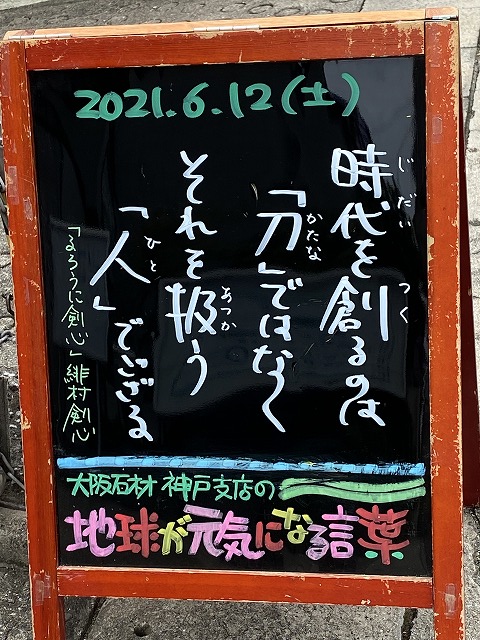 2021.6.12(土)
時代を創るのは
じだい
つく
「刀」ではなく
かたな
それを扱う
あつか
「人」でござる
ひと
「るろうに剣心」緋村剣心
大阪石材 神戸支店の
地球が元気になる言葉